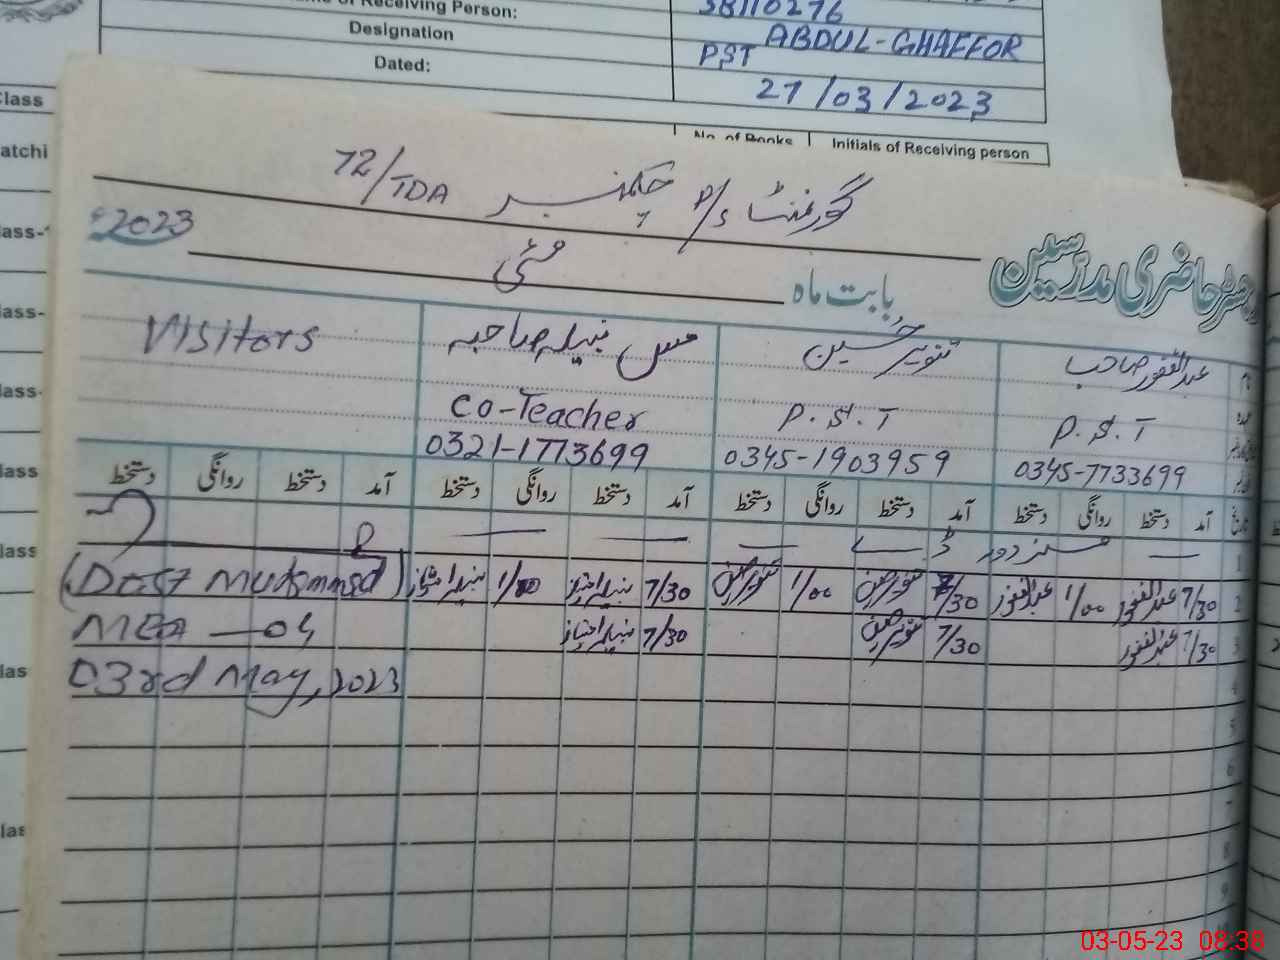 of Receiving Person:
38110276
Designation
ABDUL-GHAFFOR
PST
Dated:
27/03/2023
No. of Books
Initials of Receiving person
گورنمنٹ P/S چکنمبر 72/TDA
رجسٹر حاضری مدرسین
بابت ماہ مئی 2023ء
عبدالغفور صاحب
تنویر حسین
مس نبیلہ صاحبہ
Visitors
P.S.T
P.S.T
Co-Teacher
0345-7733699
0345-1903959
0321-1773699
آمد دستخط روانگی دستخط آمد دستخط روانگی دستخط آمد دستخط روانگی دستخط آمد دستخط روانگی دستخط
1
2 7/30 عبدالغفور 1/00 عبدالغفور 7/30 تنویر حسین 1/00 تنویر حسین 7/30 نبیلہ امتیاز 1/00 نبیلہ امتیاز
(Dost Muhammad)
3 7/30 عبدالغفور 7/30 تنویر حسین 7/30 نبیلہ امتیاز
MEA - 04
4
03rd May, 2023
5
6
7
8
9
03-05-23 08:38